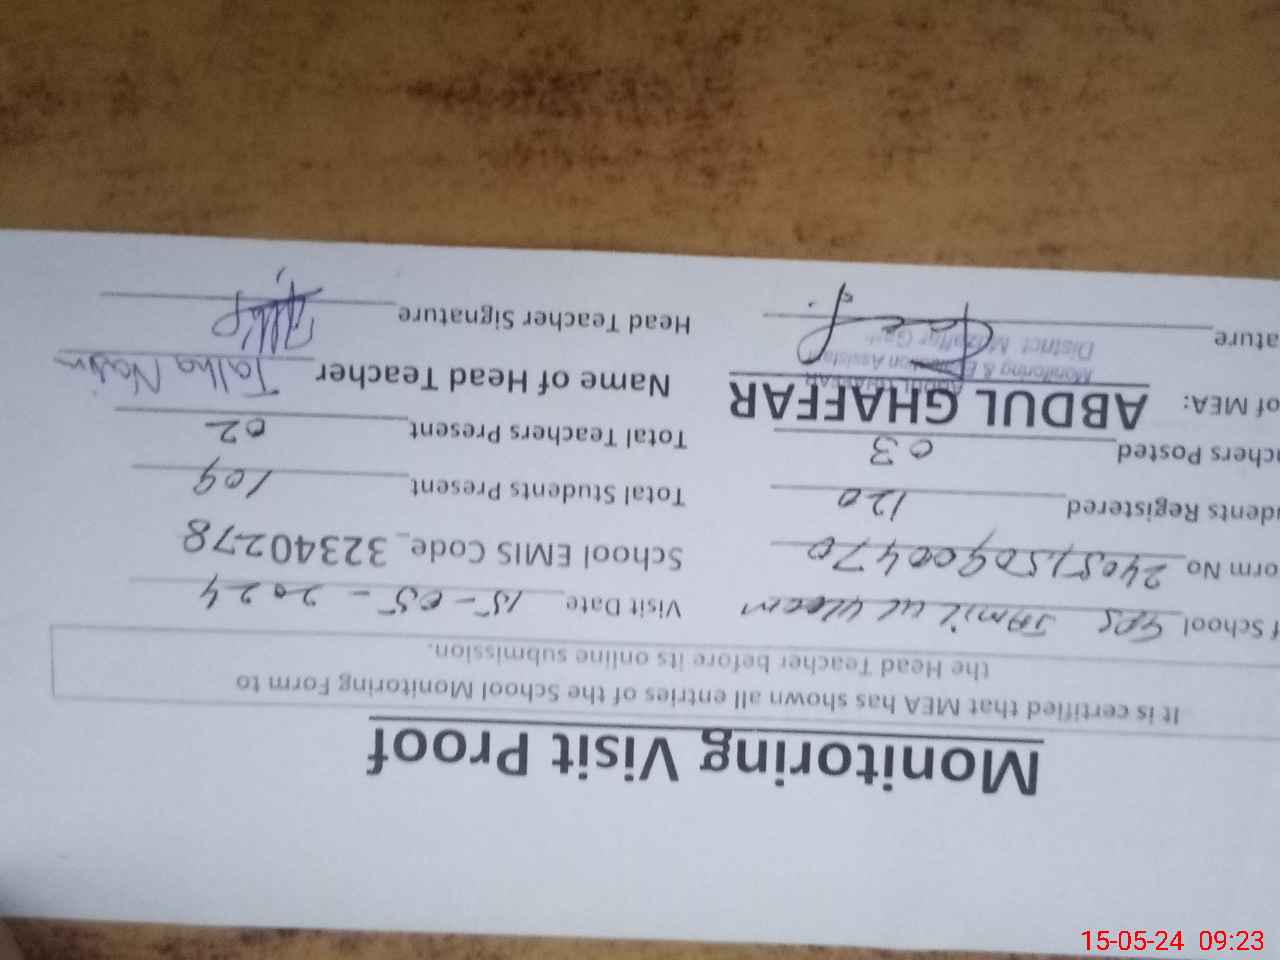 Monitoring Visit Proof
It is certified that MEA has shown all entries of the School Monitoring Form to
the Head Teacher before its online submission.
f School GPS Jamil ul uloom Visit Date 15-05-2024
orm No 2405150900470 School EMIS Code 32340278
dents Registered 120 Total Students Present 109
chers Posted 03 Total Teachers Present 02
of MEA: ABDUL GHAFFAR Name of Head Teacher Talha
Monitoring & Assista
District Muzaffar Garh
ature Head Teacher Signature
15-05-24 09:23